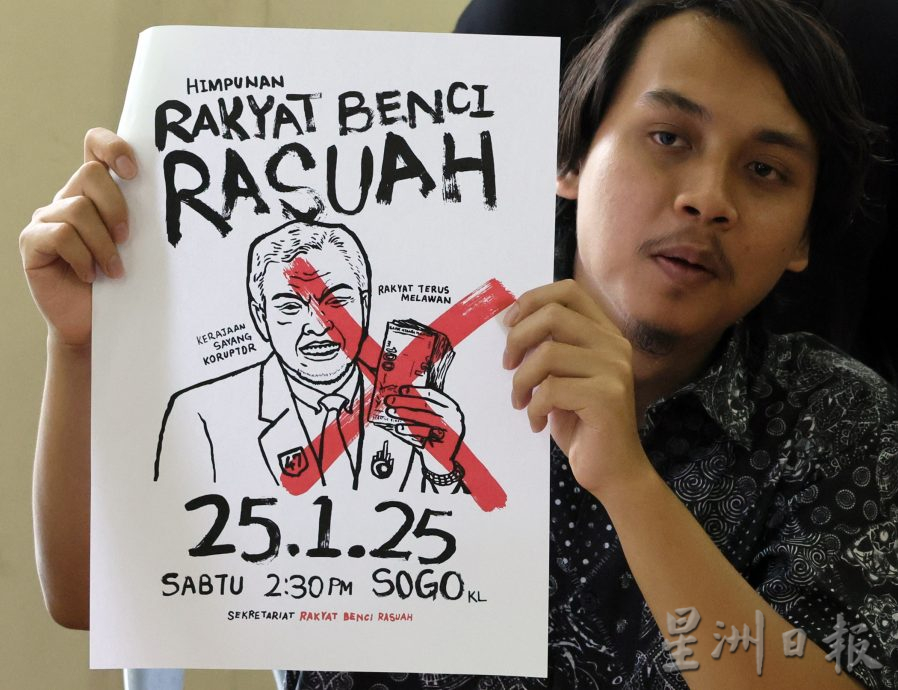 HIMPUNAN
RAKYAT BENCI
RASUAH
RAKYAT TERUS
MELAWAN
KERAJAAN
SAYANG
KORUPTOR
100
47
25.1.25
SABTU 2:30PM SOGO KL
SEKRETARIAT RAKYAT BENCI RASUAH
星洲日报